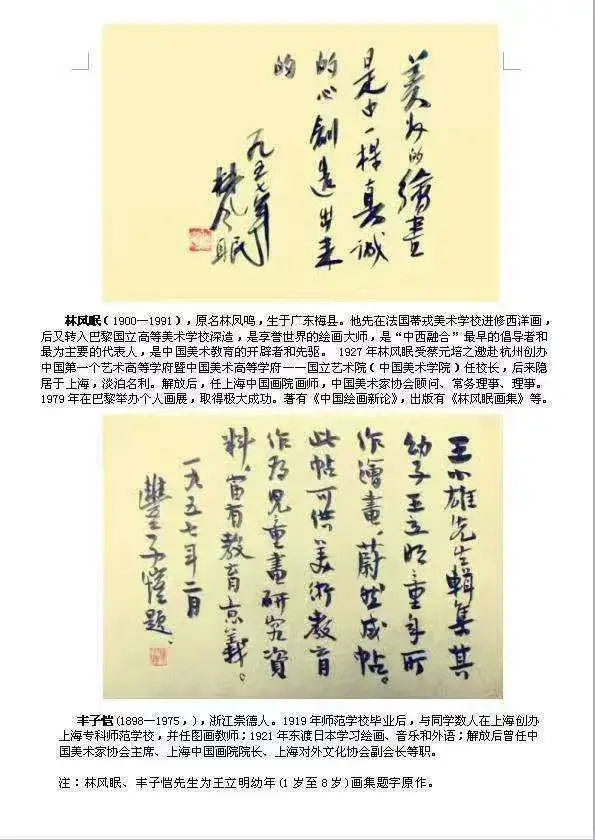 美好的繪畫
是由一棵真诚
的心創造出来
的
一九五七年
林风眠
林风眠(1900—1991),原名林凤鸣,生于广东梅县。他先在法国蒂戎美术学校进修西洋画,
后又转入巴黎国立高等美术学校深造,是享誉世界的绘画大师,是“中西融合”最早的倡导者和
最为主要的代表人,是中国美术教育的开辟者和先驱。 1927年林风眠受蔡元培之邀赴杭州创办
中国第一个艺术高等学府暨中国美术高等学府——国立艺术院(中国美术学院)任校长,后来隐
居于上海,淡泊名利。解放后,任上海中国画院画师,中国美术家协会顾问、常务理事、理事。
1979年在巴黎举办个人画展,取得极大成功。著有《中国绘画新论》,出版有《林风眠画集》等。
王小雄先生輯集其
幼子王立明童年所
作繪畫,蔚然成帖。
此帖可供美術教育
作为兒童畫研究資
料,富有教育意義。
一九五七年二月
豐子愷題。
丰子恺(1898—1975,),浙江崇德人。1919年师范学校毕业后,与同学数人在上海创办
上海专科师范学校,并任图画教师;1921年东渡日本学习绘画、音乐和外语;解放后曾任中
国美术家协会主席、上海中国画院院长、上海对外文化协会副会长等职。
注:林风眠、丰子恺先生为王立明幼年(1岁至8岁)画集题字原作。